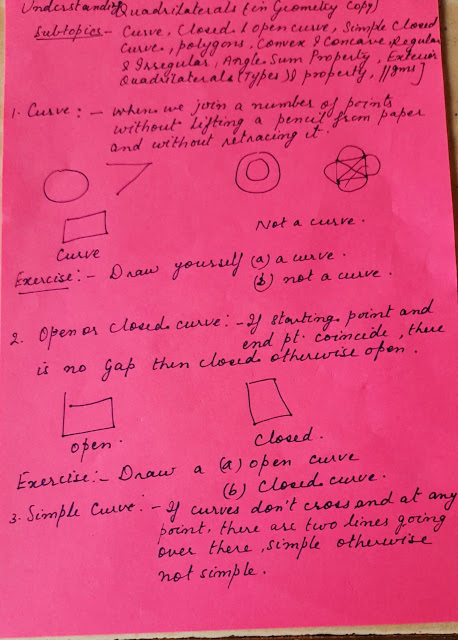 Understanding Quadrilaterals (in Geometry Copy)
Subtopics - Curve, Closed & Open curve, Simple Closed
Curve, polygons, Convex & Concave, Regular
& Irregular, Angle Sum Property, Exterior
Quadrilaterals (Types) & property, ||gms]
1. Curve :- When we join a number of points
without lifting a pencil from paper
and without retracing it.
Curve
Not a curve.
Exercise :- Draw yourself (a) a curve.
(b) not a curve.
2. Open or Closed curve :- If starting point and
end pt. coincide, there
is no gap then closed otherwise open.
Open.
Closed.
Exercise :- Draw a (a) open curve
(b) Closed curve.
3. Simple Curve :- If curves don't cross and at any
point, there are two lines going
over there, simple otherwise
not simple.